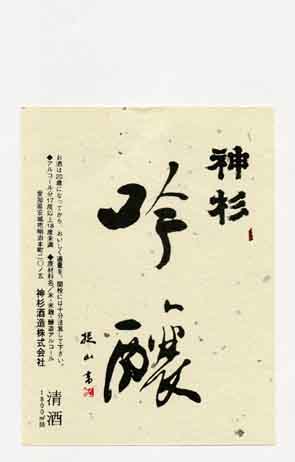 神杉
吟醸
お酒は20歳になってから、おいしく適量を。開栓には十分注意して下さい。
◆アルコール分17度以上18度未満 ◆原材料名/米・米麹・醸造アルコール
愛知県安城市明治本町二〇ノ五
神杉酒造株式会社
清酒
1800ml詰